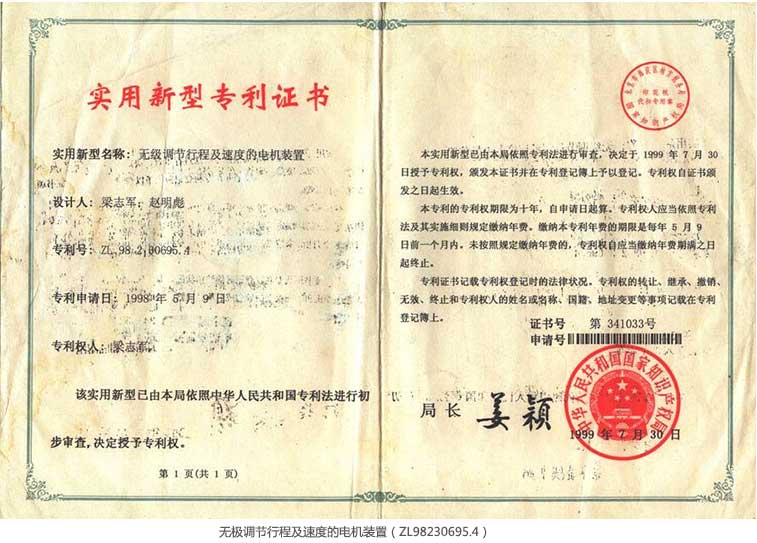 实用新型专利证书
实用新型名称：无级调节行程及速度的电机装置
设计人：梁志军；赵明彪
专利号：ZL 98 2 30695.4
专利申请日：1998 年 5 月 9 日
专利权人：梁志军
该实用新型已由本局依照中华人民共和国专利法进行初
步审查,决定授予专利权。
第 1 页(共 1 页)
印花税
代扣专用章
国家知识产权局
本实用新型已由本局依照专利法进行审查，决定于 1999 年 7 月 30
日授予专利权，颁发本证书并在专利登记簿上予以登记。专利权自证书颁
发之日起生效。
本专利的专利权期限为十年，自申请日起算。专利权人应当依照专利
法及其实施细则规定缴纳年费。缴纳本专利年费的期限是每年 5 月 9
日前一个月内。未按照规定缴纳年费的，专利权自应当缴纳年费期满之日
起终止。
专利证书记载专利权登记时的法律状况。专利权的转让、继承、撤销、
无效、终止和专利权人的姓名或名称、国籍、地址变更等事项记载在专利
登记簿上。
证书号 第 341033号
申请号
局长 姜颖
中华人民共和国国家知识产权局
1999 年 7 月 30 日
无极调节行程及速度的电机装置（ZL98230695.4）